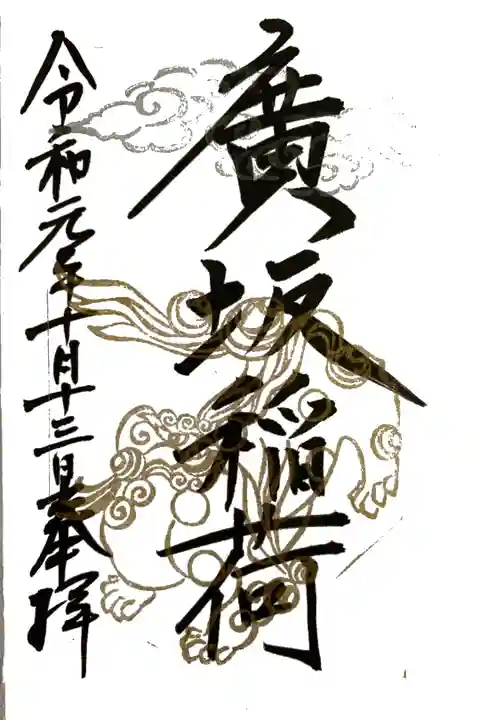 廣坂稲荷
令和元年十月十三日奉拝